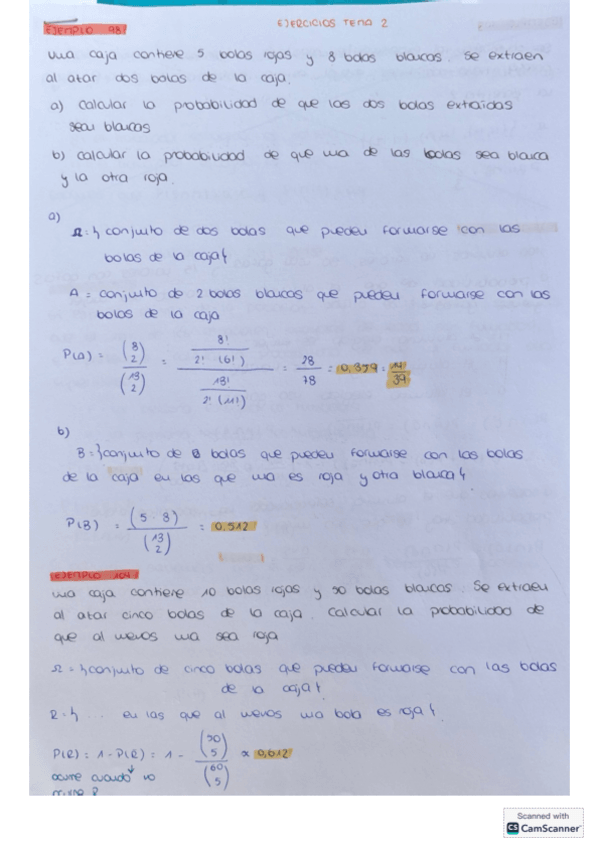 EJERCICIOS TEMA 2
EJEMPLO 98
Una caja contiene 5 bolas rojas y 8 bolas blancas. Se extraen
al azar dos bolas de la caja.
a) Calcular la probabilidad de que las dos bolas extraídas
sean blancas
b) calcular la probabilidad de que una de las bolas sea blanca
y la otra roja.
a)
Ω = { conjunto de dos bolas que pueden formarse con las
bolas de la caja {
A = conjunto de 2 bolas blancas que pueden formarse con las
bolas de la caja
P(A) = (8 2) / (13 2) = 8! / 2! (6!) / 13! / 2! (11!) = 28 / 78 = 0,359 = 14 / 39
b)
B = } conjunto de 2 bolas que pueden formarse con las bolas
de la caja en las que una es roja y otra blanca {
P(B) = (5 · 8) / (13 2) = 0,512
EJEMPLO 104
Una caja contiene 10 bolas rojas y 50 bolas blancas. Se extraen
al azar cinco bolas de la caja. Calcular la probabilidad de
que al menos una sea roja
Ω = { conjunto de cinco bolas que pueden formarse con las bolas
de la caja {
R = { ... en las que al menos una bola es roja {
P(R) = 1 - P(R) = 1 - (50 5) / (60 5) ≈ 0,612
ocurre cuando no
ocurre R
Scanned with
CS CamScanner